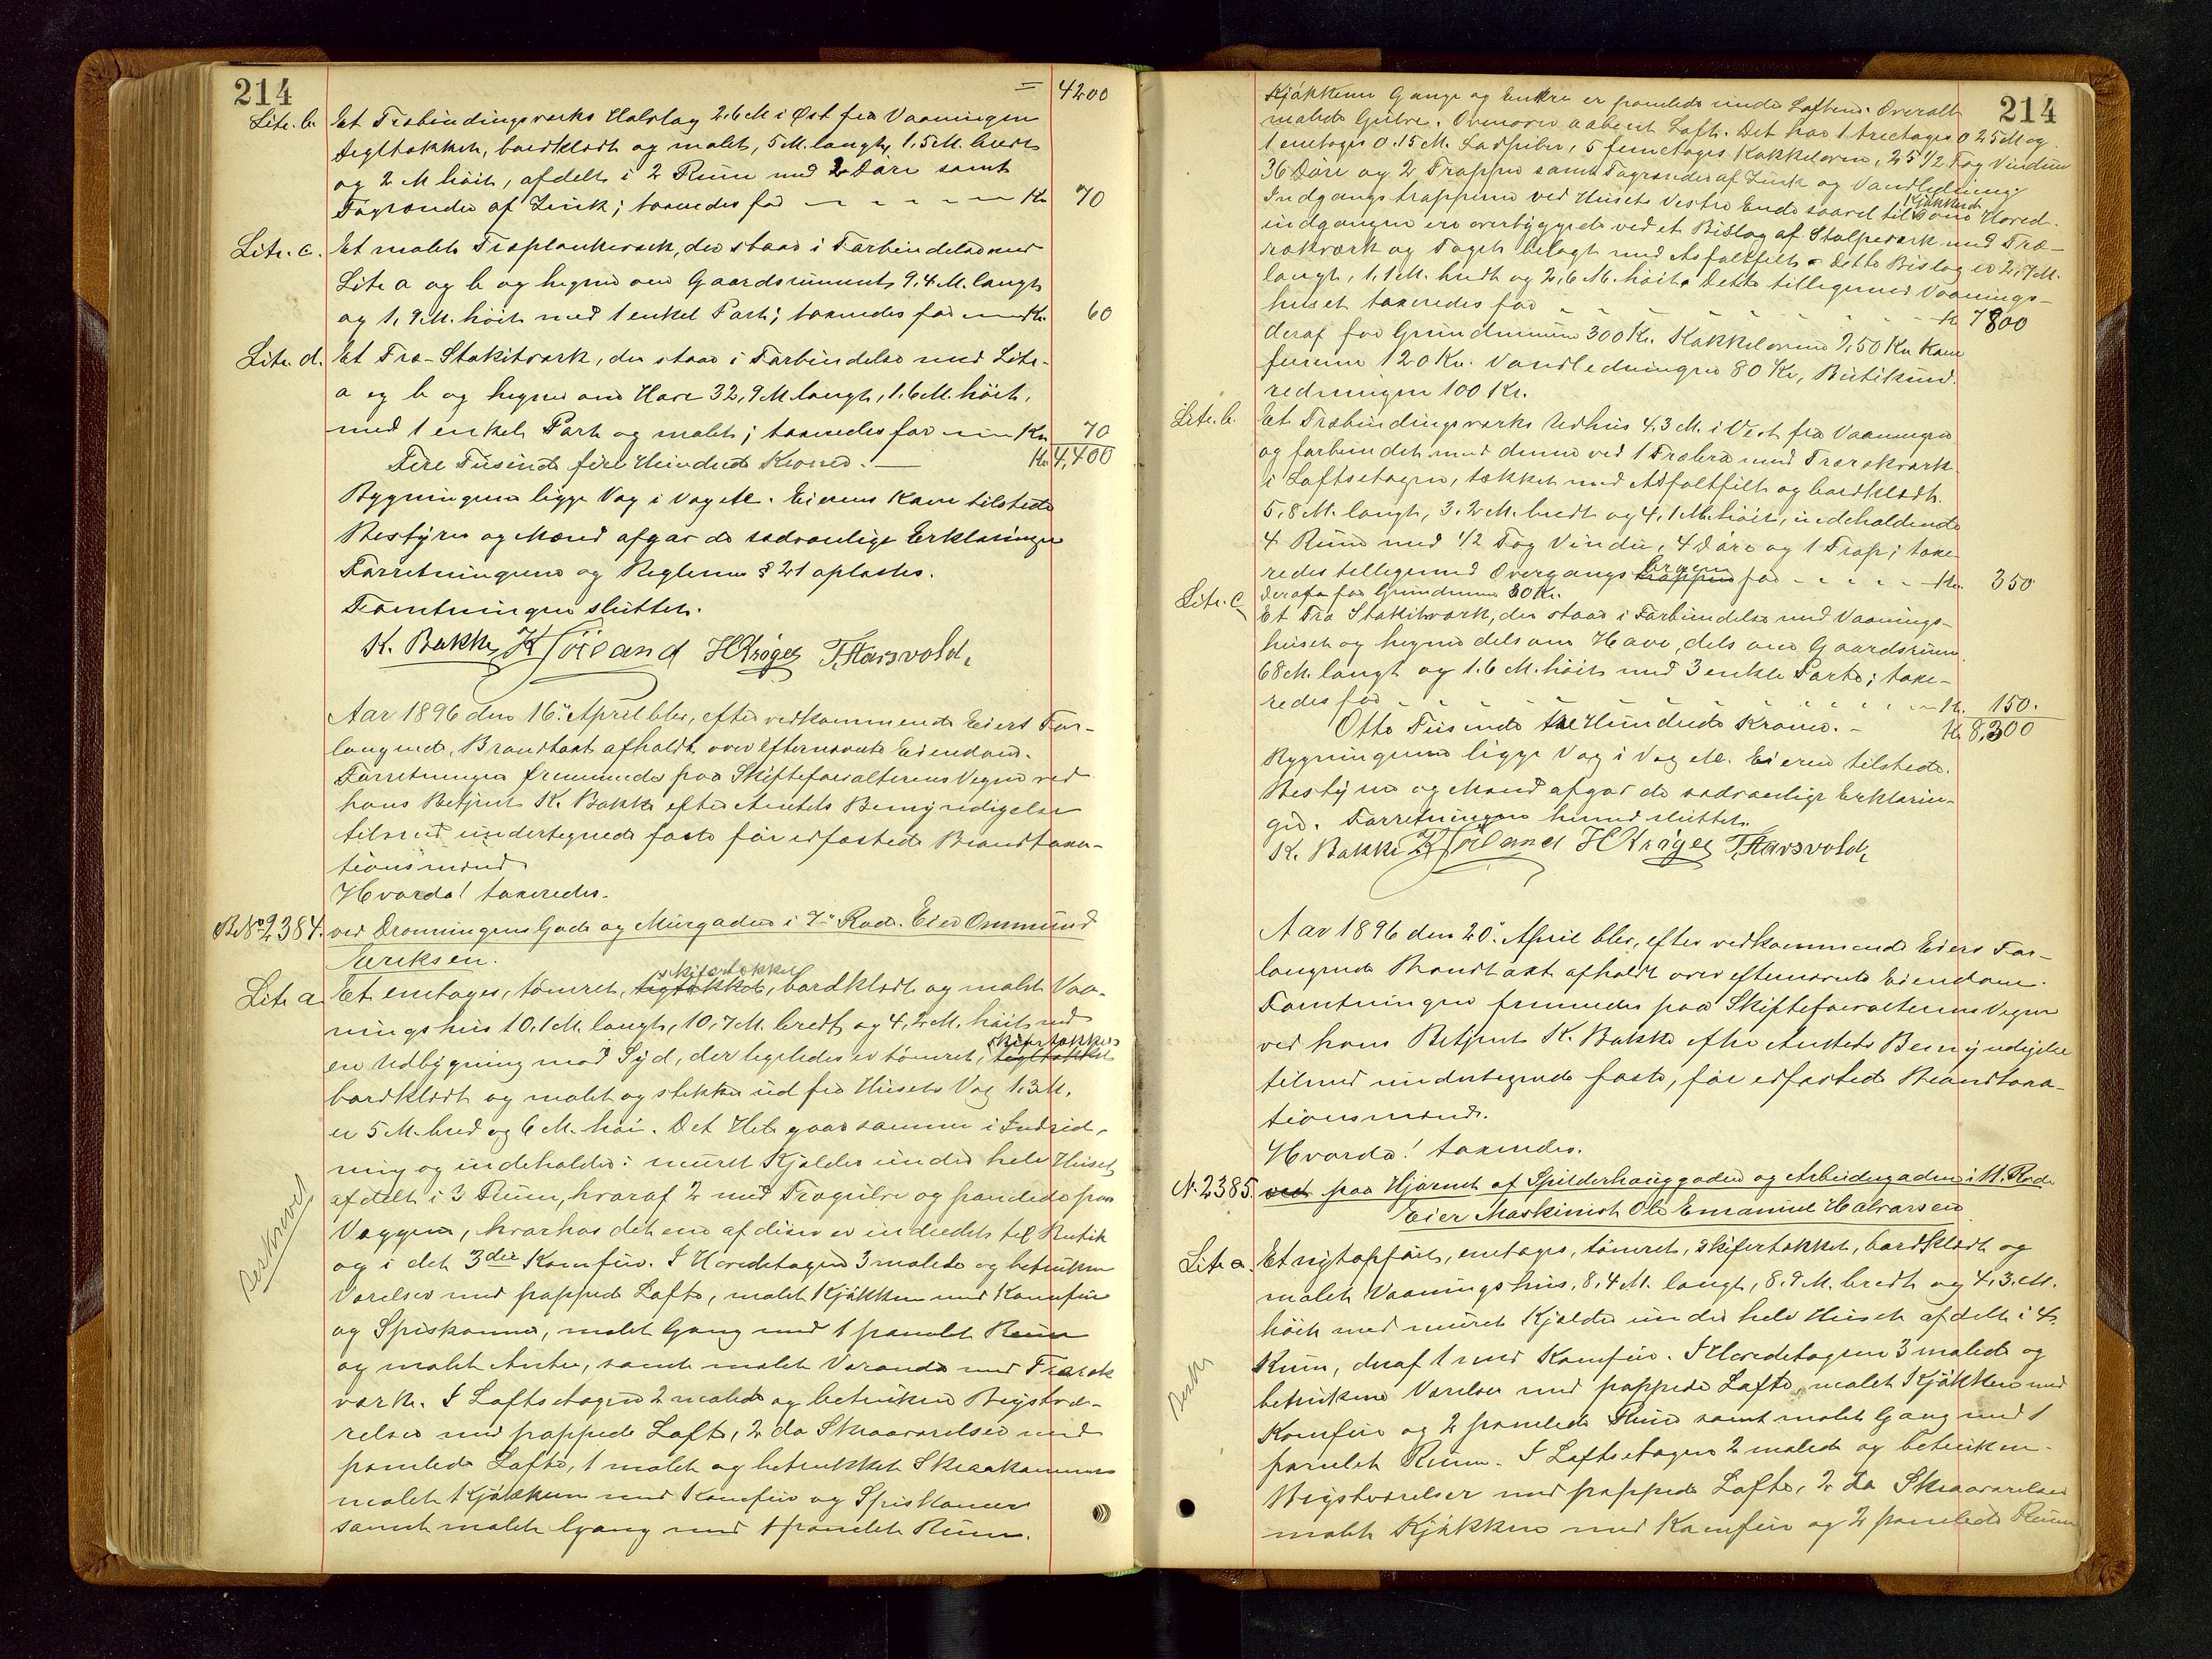 214
= 4200
Litr. b. Et Træbindingsværks Halvtag 2,6 M i Øst fra Vaaningen
tegltækket, bordklædt og malet, 5 M. langt, 1,5 M. bredt
og 2 M høit, afdelt i 2 Rum med 2 Døre samt
Tagrender af Zink; taxeredes for Kr 70
Litr. c. Et malet Træplankeværk, der staar i Forbindelse med
Litr a og b og hegner om Gaardsrummet 9,4 M. langt
og 1,9 M. høit med 1 enkel Port; taxeredes for Kr. 60
Litr. d. Et Træ-Stakitværk, der staar i Forbindelse med Litr.
a og b og hegner om Have 32,9 M. langt, 1,6 M. høit,
med 1 enkelt Port og malet; taxeredes for Kr. 70
Fire Tusinde fire Hundrede Kroner. Kr 4,400
Bygningerne ligge Væg i Væg etc. Eierens Kone tilstede
Bestyrer og Mænd afgav de sædvanlige Erklæringer
Forretningerne og Reglerne § 21 oplæstes.
Forretningen sluttet.
K. Bakke K Joreand H Krøger T. Harsvold.
Aar 1896 den 16. April blev, efter vedkommende Eiers For-
langende, Brandtaxt afholdt over efternævnte Eiendom.
Forretningen fremmedes paa Skifteforvalterens Vegne ved
hans Betjent K. Bakke efter Amtets Bemyndigelse
tilmed undertegnede faste før edfæstede Brandtaxa-
tionsmænd.
Hvorda! taxeredes.
B. No 2384. ved Dronningens Gade og Murgaden i 7. Rode. Eier Ommund
Neriksen.
skifertækket
Litr a Et enetages, tømret, tegltækket, bordklædt og malet Vaa-
ningshus 10,1 M. langt, 10,7 M. bredt og 4,2 M. høit med
skifertækket
en Udbygning mod Syd, der ligeledes er tømret, tegltækket
bordklædt og malet og stikker ud fra Husets Væg 1,3 M.
er 5 M. bred og 6 M. høi. Det Hele gaar sammen i Indred-
ning og indeholder: muret Kjælder under hele Huset,
afdelt i 3 Rum, hvoraf 2 med Trægulve og panelede paa
Væggene, hvorhos det ene af disse er indredet til Butik
og i det 3die Komfur. I Hovedetagen 3 malede og betrukne
Værelser med pappede Lofte, malet Kjøkken med Komfur
og Spiskammer, malet Gang med 1 panelet Rum
og malet Entre, samt malet Veranda med Træræk
værk. I Loftsetagen 2 malede og betrukne Kvistvæ-
relser med pappede Lofte, 2 do Skraaværelser med
panelede Lofte, 1 malet og betrukket Skraakammer
malet Kjøkken med Komfur og Spiskammer
samt malet Gang med 1 panelet Rum.
Beskrevet
214
Kjøkkenet Gange og Entre er panelede under Loftene. Overalt
malede Gulve. Ovenover aabent Loft. Det har 1 treetages 0.25 M og
1 enetages 0.15 M. Ladpiber, 5 femetages Kakkelovne, 25 1/2 Fag Vinduer
36 Døre og 2 Trapper samt Tagrender af Zink og Vandledning
Kjøkken
Indgangstrapperne ved Husets vestre Ende saavel til som Hoved-
indgangen ere overbyggede ved et Bislag af Stolpeværk med Træ-
rækværk og Taget belagt med Asfaltfilt. Dette Bislag er 2,7 M.
langt, 1,1 M. bredt og 2,6 M. høit. Dette tilligemed Vaanings-
huset taxeredes for Kr 7800
deraf for Grundmuren 300 Kr. Kakkelovne 250 Kr Kom
furene 120 Kr. Vandledningen 80 Kr, Butikind-
redningen 100 Kr.
Litr. b. Et Træbindingsværks Udhus 4,3 M. i Vest fra Vaaningen
og forbundet med denne ved 1 Træbro med Trærækværk
i Loftsetagen, tækket med Asfaltfilt og bordklædt.
5,8 M. langt, 3,2 M. bredt og 4,1 M. høit, indeholdende
4 Rum med 1/2 Fag Vindu, 4 Døre og 1 Trap; taxe-
broen
redes tilligemed Overgangs trappen for Kr. 350
deraf for Grundmuren 20 Kr.
Litr. c Et Træ Stakitværk, der staar i Forbindelse med Vaanings-
huset og hegner dels om Have, dels om Gaardsrum.
68 M. langt og 1.6 M. høit med 3 enkle Porte; taxe-
redes for Kr. 150.
Otte Tusinde tre Hundrede Kroner. - Kr 8,300
Bygningerne ligge Væg i Væg etc. Eieren tilstede.
Bestyrer og Mænd afgav de sædvanlige Erklærin-
ger. Forretningen hermed sluttet.
K. Bakke K Joreand H Krøger T. Harsvold.
Aar 1896 den 20. April blev, efter vedkommende Eiers For-
langende Brandtaxt afholdt over efternævnte Eiendom.
Forretningen fremmedes paa Skifteforvalterens Vegne
ved hans Betjent K. Bakke efter Amtets Bemyndigelse
tilmed undertegnede faste, før edfæstede Brandtaxa-
tionsmænd.
Hvorda! taxeredes.
N. 2385. ved paa Hjørnet af Spilderhauggaden og Arbeidergaden i 11. Rode
Eier Maskinist Ole Emanuel Halvorsen
Litr a. Et nyt opført, enetages, tømret, skifertækket, bordklædt og
malet Vaaningshus, 8,4 M. langt, 8,9 M. bredt og 4,3 M.
høit med muret Kjælder under hele Huset afdelt i 4
Rum, deraf 1 med Komfur. I Hovedetagen 3 malede og
betrukne Værelser med pappede Lofte, malet Kjøkken med
Komfur og 2 panelede Rum samt malet Gang med 1
panelet Rum. I Loftsetagen 2 malede og betrukne
Kvistværelser med pappede Lofte, 2 do Skraaværelser
malet Kjøkken med Komfur og 2 panelede Rum